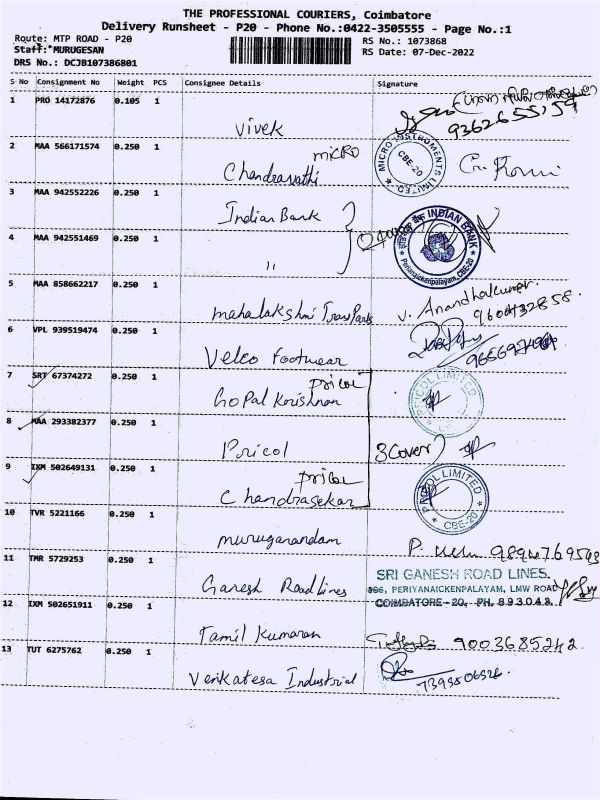 THE PROFESSIONAL COURIERS, Coimbatore
Delivery Runsheet - P20 - Phone No.:0422-3505555 - Page No.:1
Route: MTP ROAD - P20
RS No.: 1073868
Staff: MURUGESAN
RS Date: 07-Dec-2022
DRS No.: DCJB107386801
S No Consignment No Weight PCS Consignee Details Signature
1 PRO 14172876 0.105 1
Vivek
9362655159
2 MAA 566171574 0.250 1
micro
Chandravathi
MICRO INSTRUMENTS LIMITED CBE-20
3 MAA 942552226 0.250 1
Indian Bank
INDIAN BANK
Periyanaickenpalayam, CBE-20
4 MAA 942551469 0.250 1
"
5 MAA 858662217 0.250 1
mahalakshmi Trans Parts
V. Anandhakumar.
9600432858.
6 VPL 939519474 0.250 1
Velco Footwear
7 SRT 67374272 0.250 1
pricol
Gopal Krishnan
PRICOL LIMITED
8 MAA 293382377 0.250 1
Pricol
3 Cover
9 IXM 502649131 0.250 1
pricol
Chandrasekar
PRICOL LIMITED CBE-20
10 TVR 5221166 0.250 1
muruganandam
11 TMR 5729253 0.250 1
Ganesh Road lines
SRI GANESH ROAD LINES.
PERIYANAICKENPALAYAM, LMW ROAD
COIMBATORE - 20, PH. 893048
12 IXM 502651911 0.250 1
Tamil Kumaran
9003685242
13 TUT 6275762 0.250 1
Venkatesa Industrial